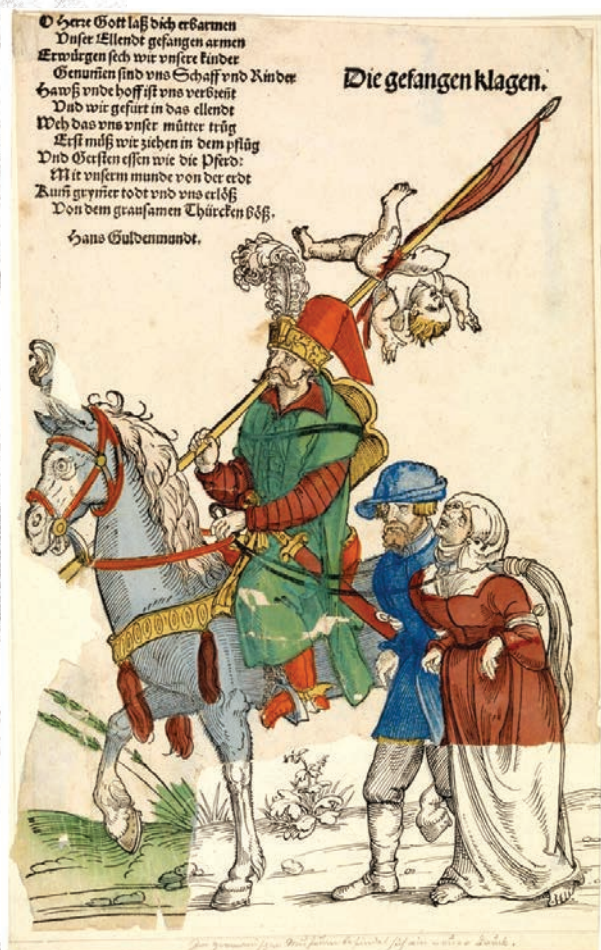 O Herre Gott laß dich erbarmen
Vnser Ellendt gefangen armen
Erwürgen sech wir vnsere kinder
Genummen sind vns Schaff vnd Rinder
Hawß vnde hoff ist vns verbrent
Vnd wir gefürt in das ellendt
Weh das vns vnser mütter trüg
Erst müß wir ziehen in dem pflüg
Vnd Gersten essen wie die Pferd:
Mit vnserm munde von der erdt
Kum grymer todt vnd vns erlöß
Von dem grausamen Thürcken böß.
Hans Guldenmundt.
Die gefangen klagen.